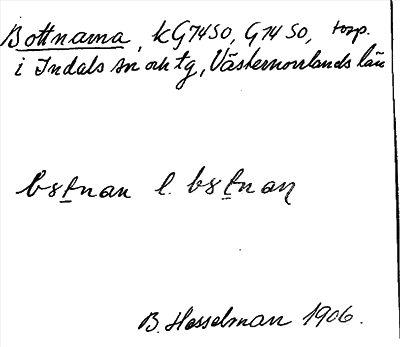 Bottnarna, KG7450, G7450, torp.
i Indals sn och tg, Västernorrlands län
bstnan l. bstnaŋ
B. Hesselman 1906.